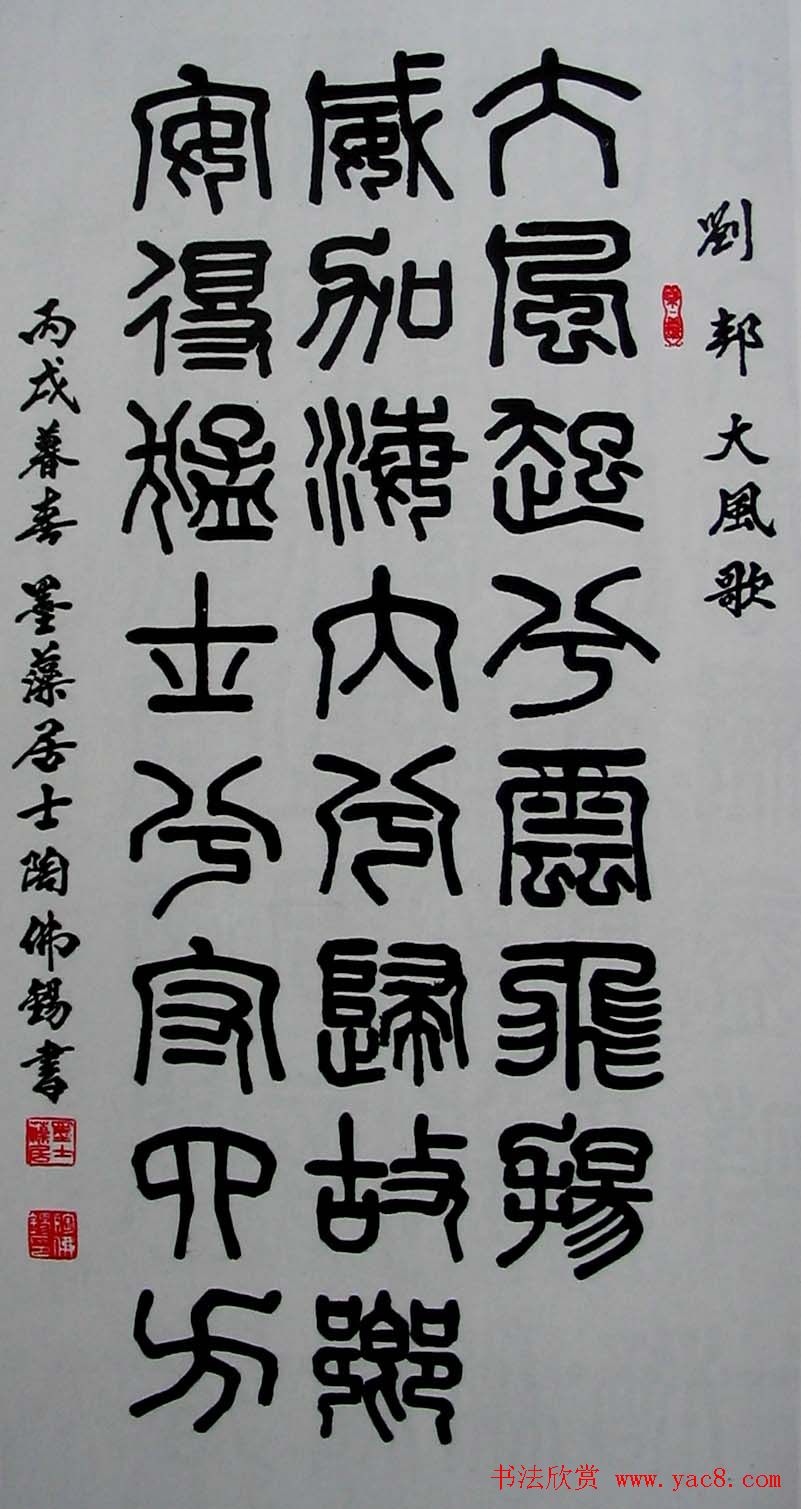 劉邦大風歌
大風起兮雲飛揚
威加海内兮歸故鄉
安得猛士兮守四方
丙戌暮春墨藻居士陶佛錫書
书法欣赏 www.yac8.com